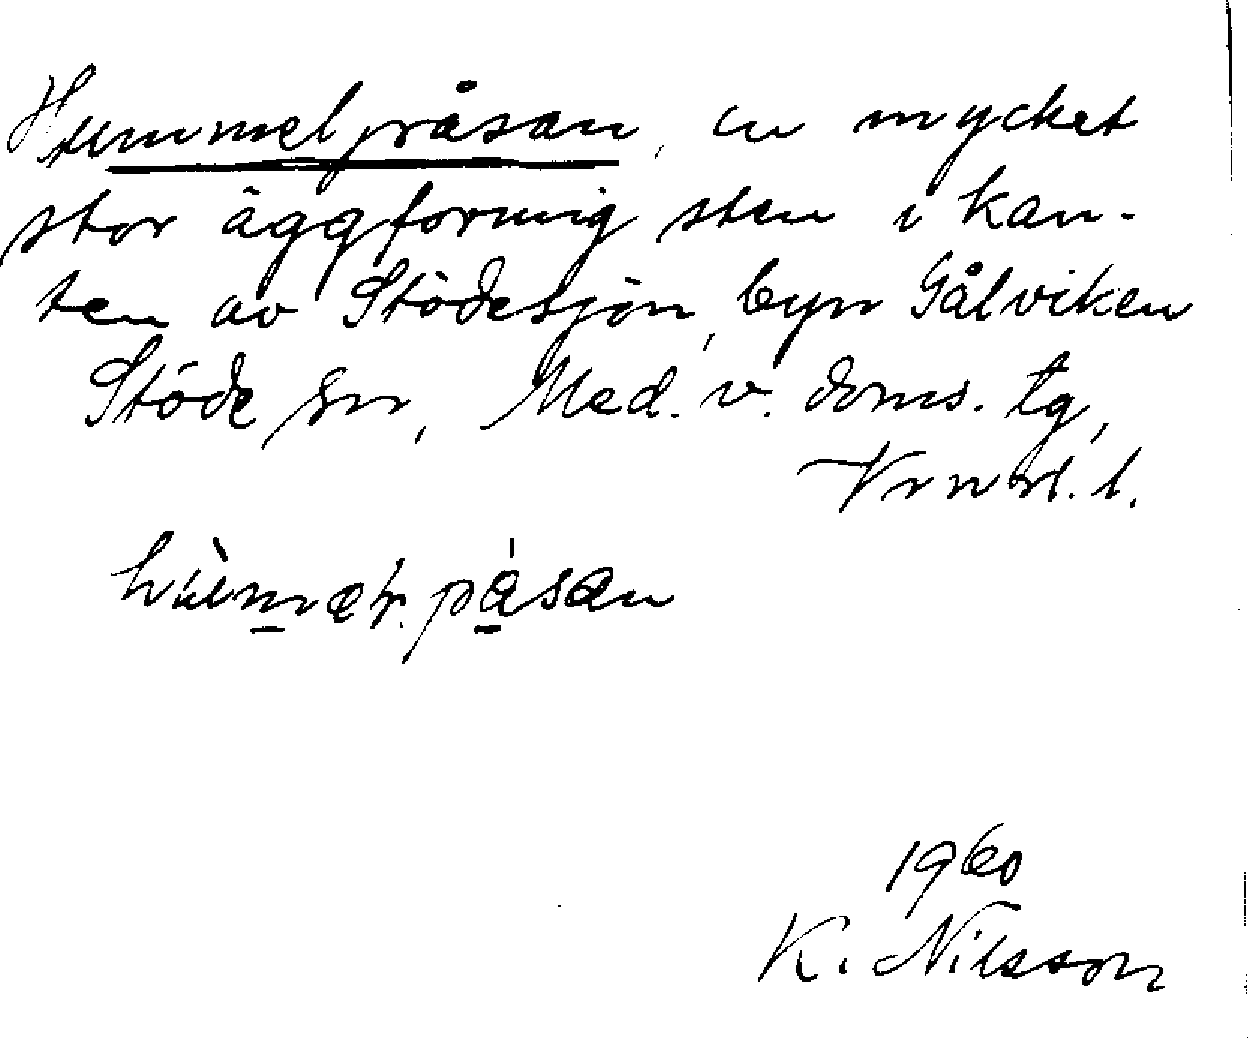 Hummelpåsan, en mycket
stor äggformig sten i kan-
ten av Stödesjön, byn Gålviken
Stöde sn, Med. v. doms. tg,
Vrnrl. l.
1960
K. Nilsson